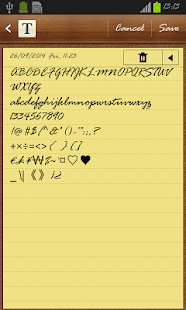 13:13
T Cancel Save
26/09/2014 Fri, 11:23
ABCDEFGHIJKLMNOPQRSTUV
WXYZ
abcdefghijklmnopqrstuvwxyz
1234567890
!@#$/^&*()-":;,?
+×÷=<>{}[]
€£¥₩%~¤♡♥
_\|《》¡¿